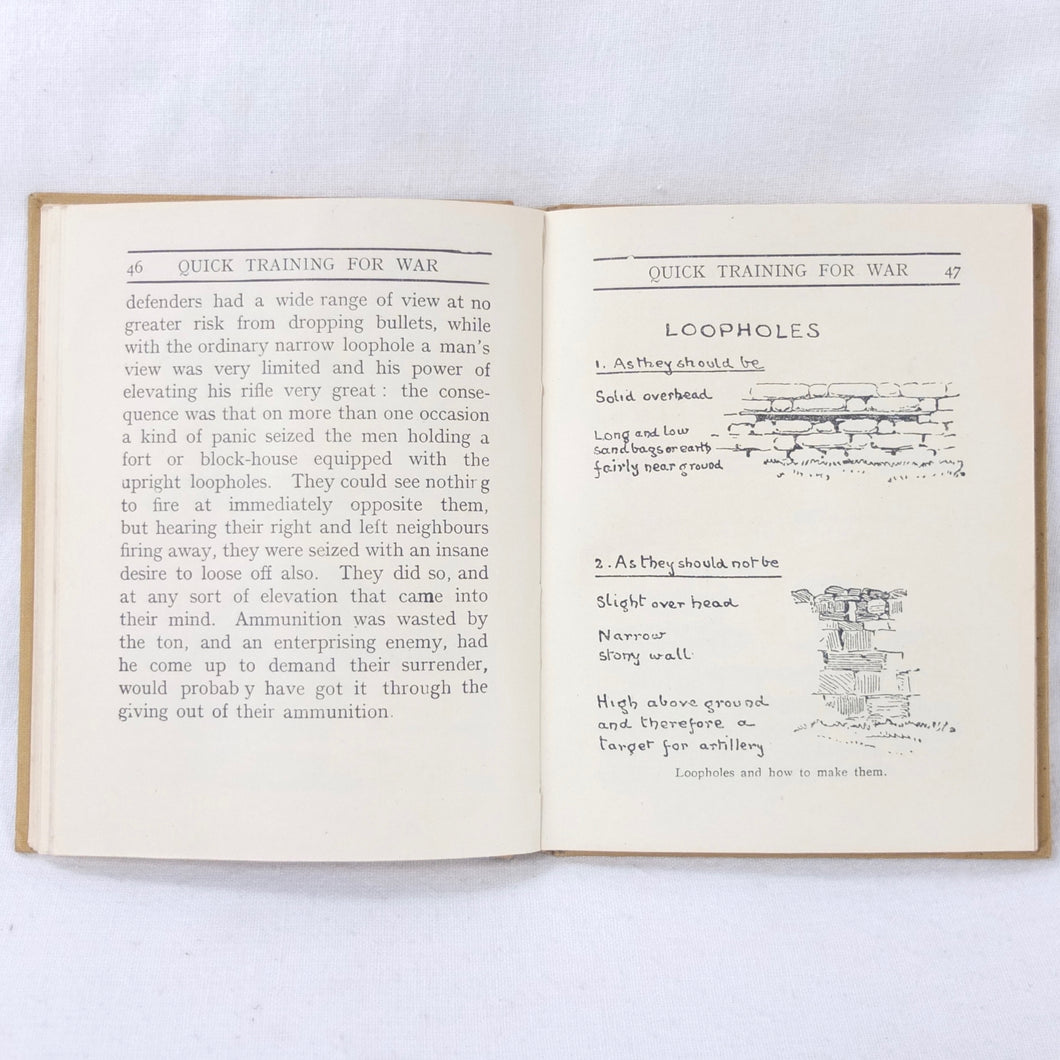 46 QUICK TRAINING FOR WAR
defenders had a wide range of view at no
greater risk from dropping bullets, while
with the ordinary narrow loophole a man's
view was very limited and his power of
elevating his rifle very great : the conse-
quence was that on more than one occasion
a kind of panic seized the men holding a
fort or block-house equipped with the
upright loopholes. They could see nothir g
to fire at immediately opposite them,
but hearing their right and left neighbours
firing away, they were seized with an insane
desire to loose off also. They did so, and
at any sort of elevation that came into
their mind. Ammunition was wasted by
the ton, and an enterprising enemy, had
he come up to demand their surrender,
would probab y have got it through the
giving out of their ammunition.
QUICK TRAINING FOR WAR 47
LOOPHOLES
1. As they should be
Solid overhead
Long and low
sand bags or earth
fairly near ground
2. As they should not be
Slight over head
Narrow
stony wall
High above ground
and therefore a
target for artillery
Loopholes and how to make them.